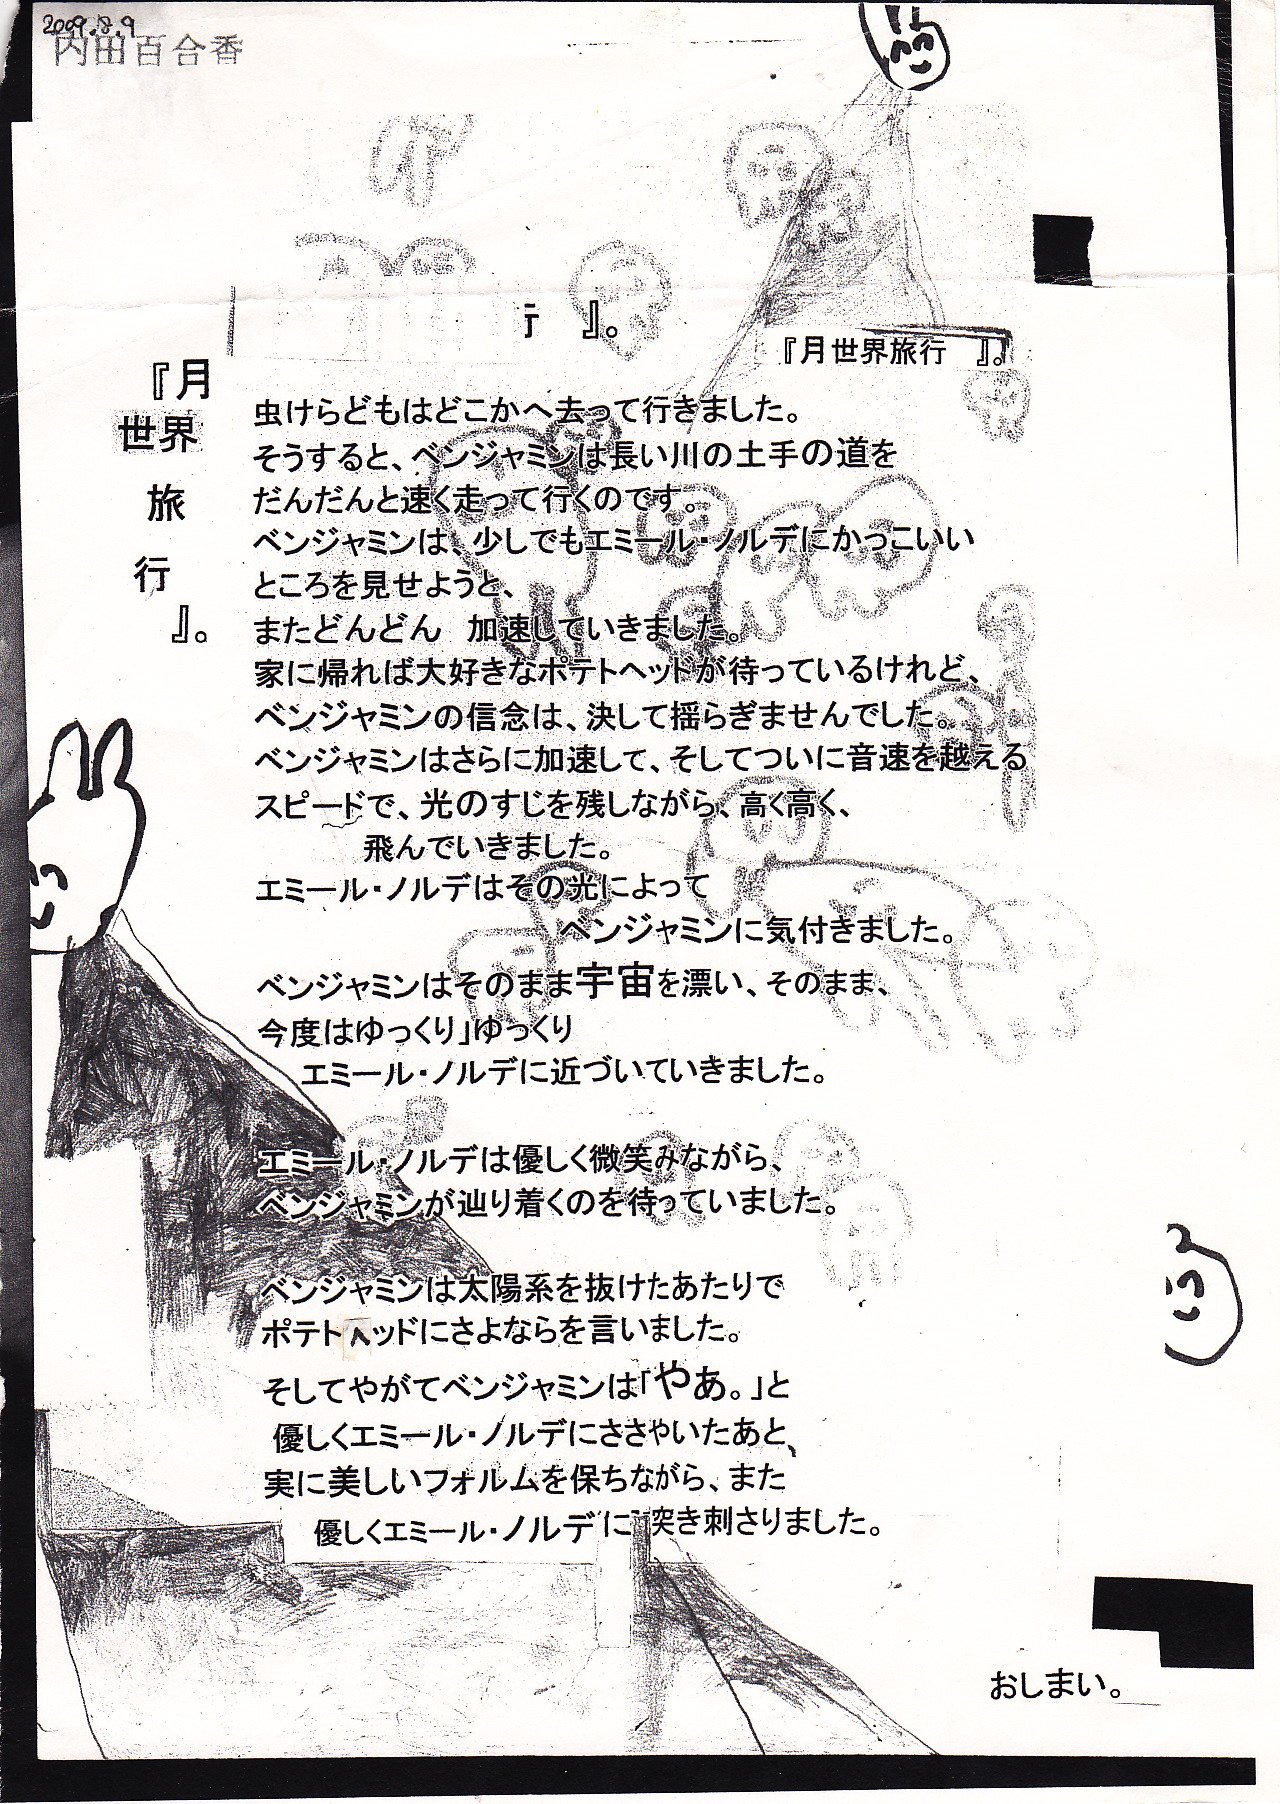 2009.8.9
内田百合香
行　』。
『月世界旅行　』。
『月
世界
旅
行
』。
虫けらどもはどこかへ去って行きました。
そうすると、ベンジャミンは長い川の土手の道を
だんだんと速く走って行くのです。
ベンジャミンは、少しでもエミール・ノルデにかっこいい
ところを見せようと、
またどんどん　加速していきました。
家に帰れば大好きなポテトヘッドが待っているけれど、
ベンジャミンの信念は、決して揺らぎませんでした。
ベンジャミンはさらに加速して、そしてついに音速を越える
スピードで、光のすじを残しながら、高く高く、
飛んでいきました。
エミール・ノルデはその光によって
ベンジャミンに気付きました。
ベンジャミンはそのまま宇宙を漂い、そのまま、
今度はゆっくり」ゆっくり
エミール・ノルデに近づいていきました。
エミール・ノルデは優しく微笑みながら、
ベンジャミンが辿り着くのを待っていました。
ベンジャミンは太陽系を抜けたあたりで
ポテトヘッドにさよならを言いました。
そしてやがてベンジャミンは「やあ。」と
優しくエミール・ノルデにささやいたあと、
実に美しいフォルムを保ちながら、また
優しくエミール・ノルデに突き刺さりました。
おしまい。